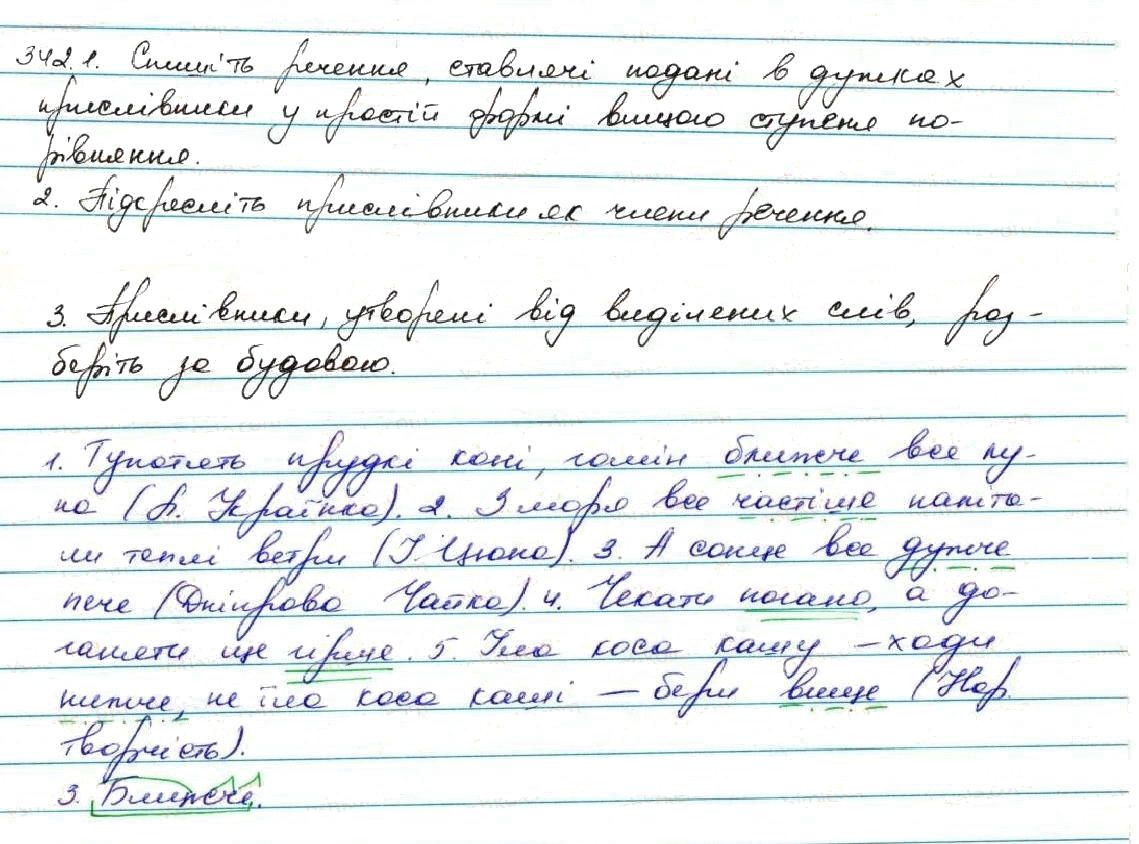 342.1. Спишіть речення, ставлячі подані в дужках
прислівники у простій формі вищого ступеня по-
рівняння.
2. Підкресліть прислівники як члени речення.
3. Прислівники, утворені від виділених слів, роз-
беріть за будовою.
1. Тупотять прудкі коні, гомін ближче все лу-
на (Л. Українка). 2. З моря все частіше напли-
ли теплі ветри (І. Цюпа). 3. А сонце все дужче
пече (Дніпрова Чайка). 4. Чекати погано, а до-
ганяти ще гірше. 5. Їла коса кашу – ходи
нижче, не їла коса каші – бери вище (Нар.
творчість).
3. Ближче.